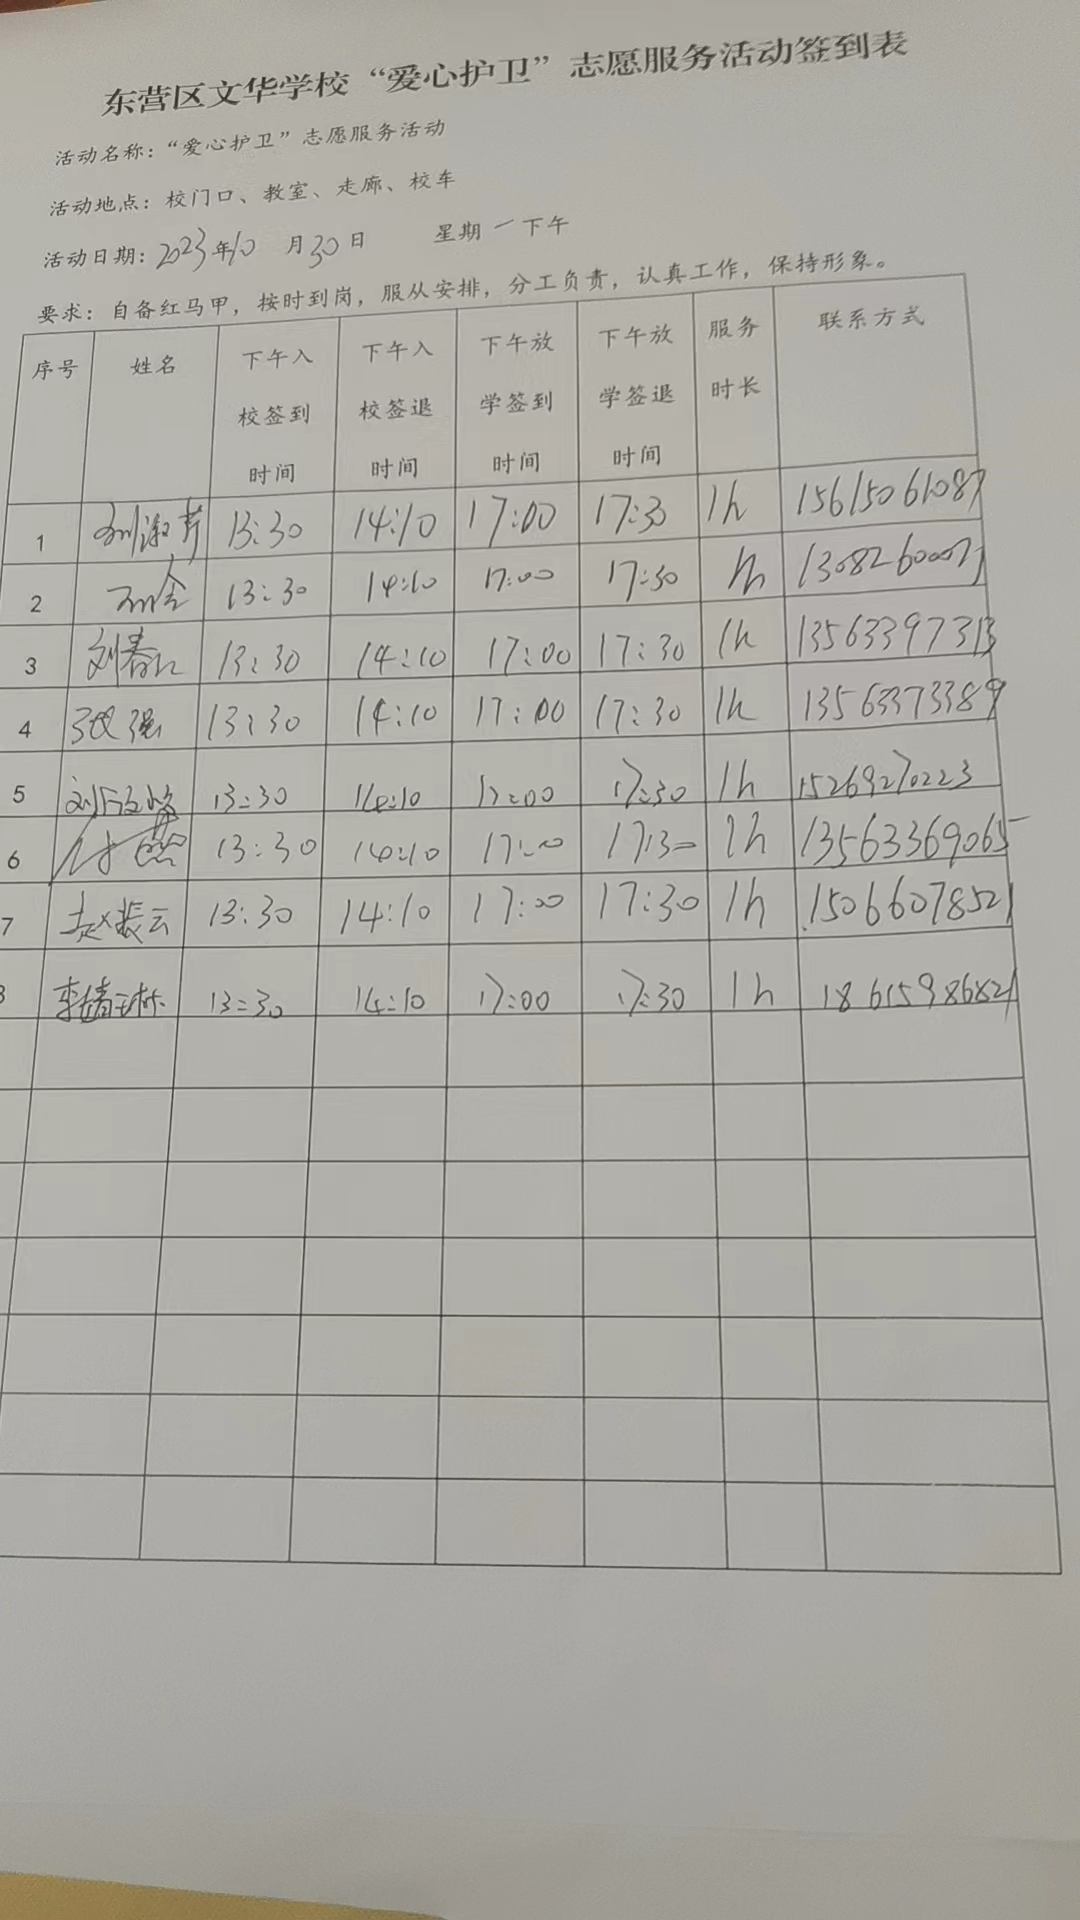 东营区文华学校“爱心护卫”志愿服务活动签到表
活动名称：“爱心护卫”志愿服务活动
活动地点：校门口、教室、走廊、校车
活动日期：2023年10月30日 星期一下午
要求：自备红马甲，按时到岗，服从安排，分工负责，认真工作，保持形象。
序号 姓名 下午入校签到时间 下午入校签退时间 下午放学签到时间 下午放学签退时间 服务时长 联系方式
1 刘淑芹 13:30 14:10 17:00 17:30 1h 15615061087
2 13:30 14:10 17:00 17:30 1h
3 刘春红 13:30 14:10 17:00 17:30 1h 13563397313
4 张强 13:30 14:10 17:00 17:30 1h 13563373389
5 13:30 14:10 17:00 17:30 1h 15269270223
6 付燕 13:30 14:10 17:00 17:30 1h 13563369065
7 赵振云 13:30 14:10 17:00 17:30 1h 15066078521
13:30 14:10 17:00 17:30 1h 18615986821